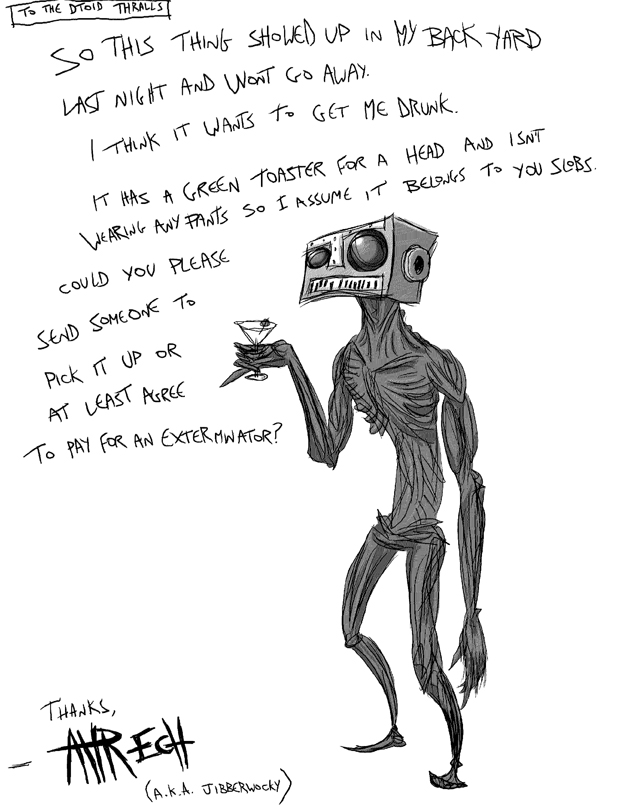 TO THE DTOID THRALLS
SO THIS THING SHOWED UP IN MY BACK YARD
LAST NIGHT AND WONT GO AWAY.
I THINK IT WANTS TO GET ME DRUNK.
IT HAS A GREEN TOASTER FOR A HEAD AND ISNT
WEARING ANY PANTS SO I ASSUME IT BELONGS TO YOU SLOBS.
COULD YOU PLEASE
SEND SOMEONE TO
PICK IT UP OR
AT LEAST AGREE
TO PAY FOR AN EXTERMINATOR?
THANKS,
(A.K.A. JIBBERWOCKY)